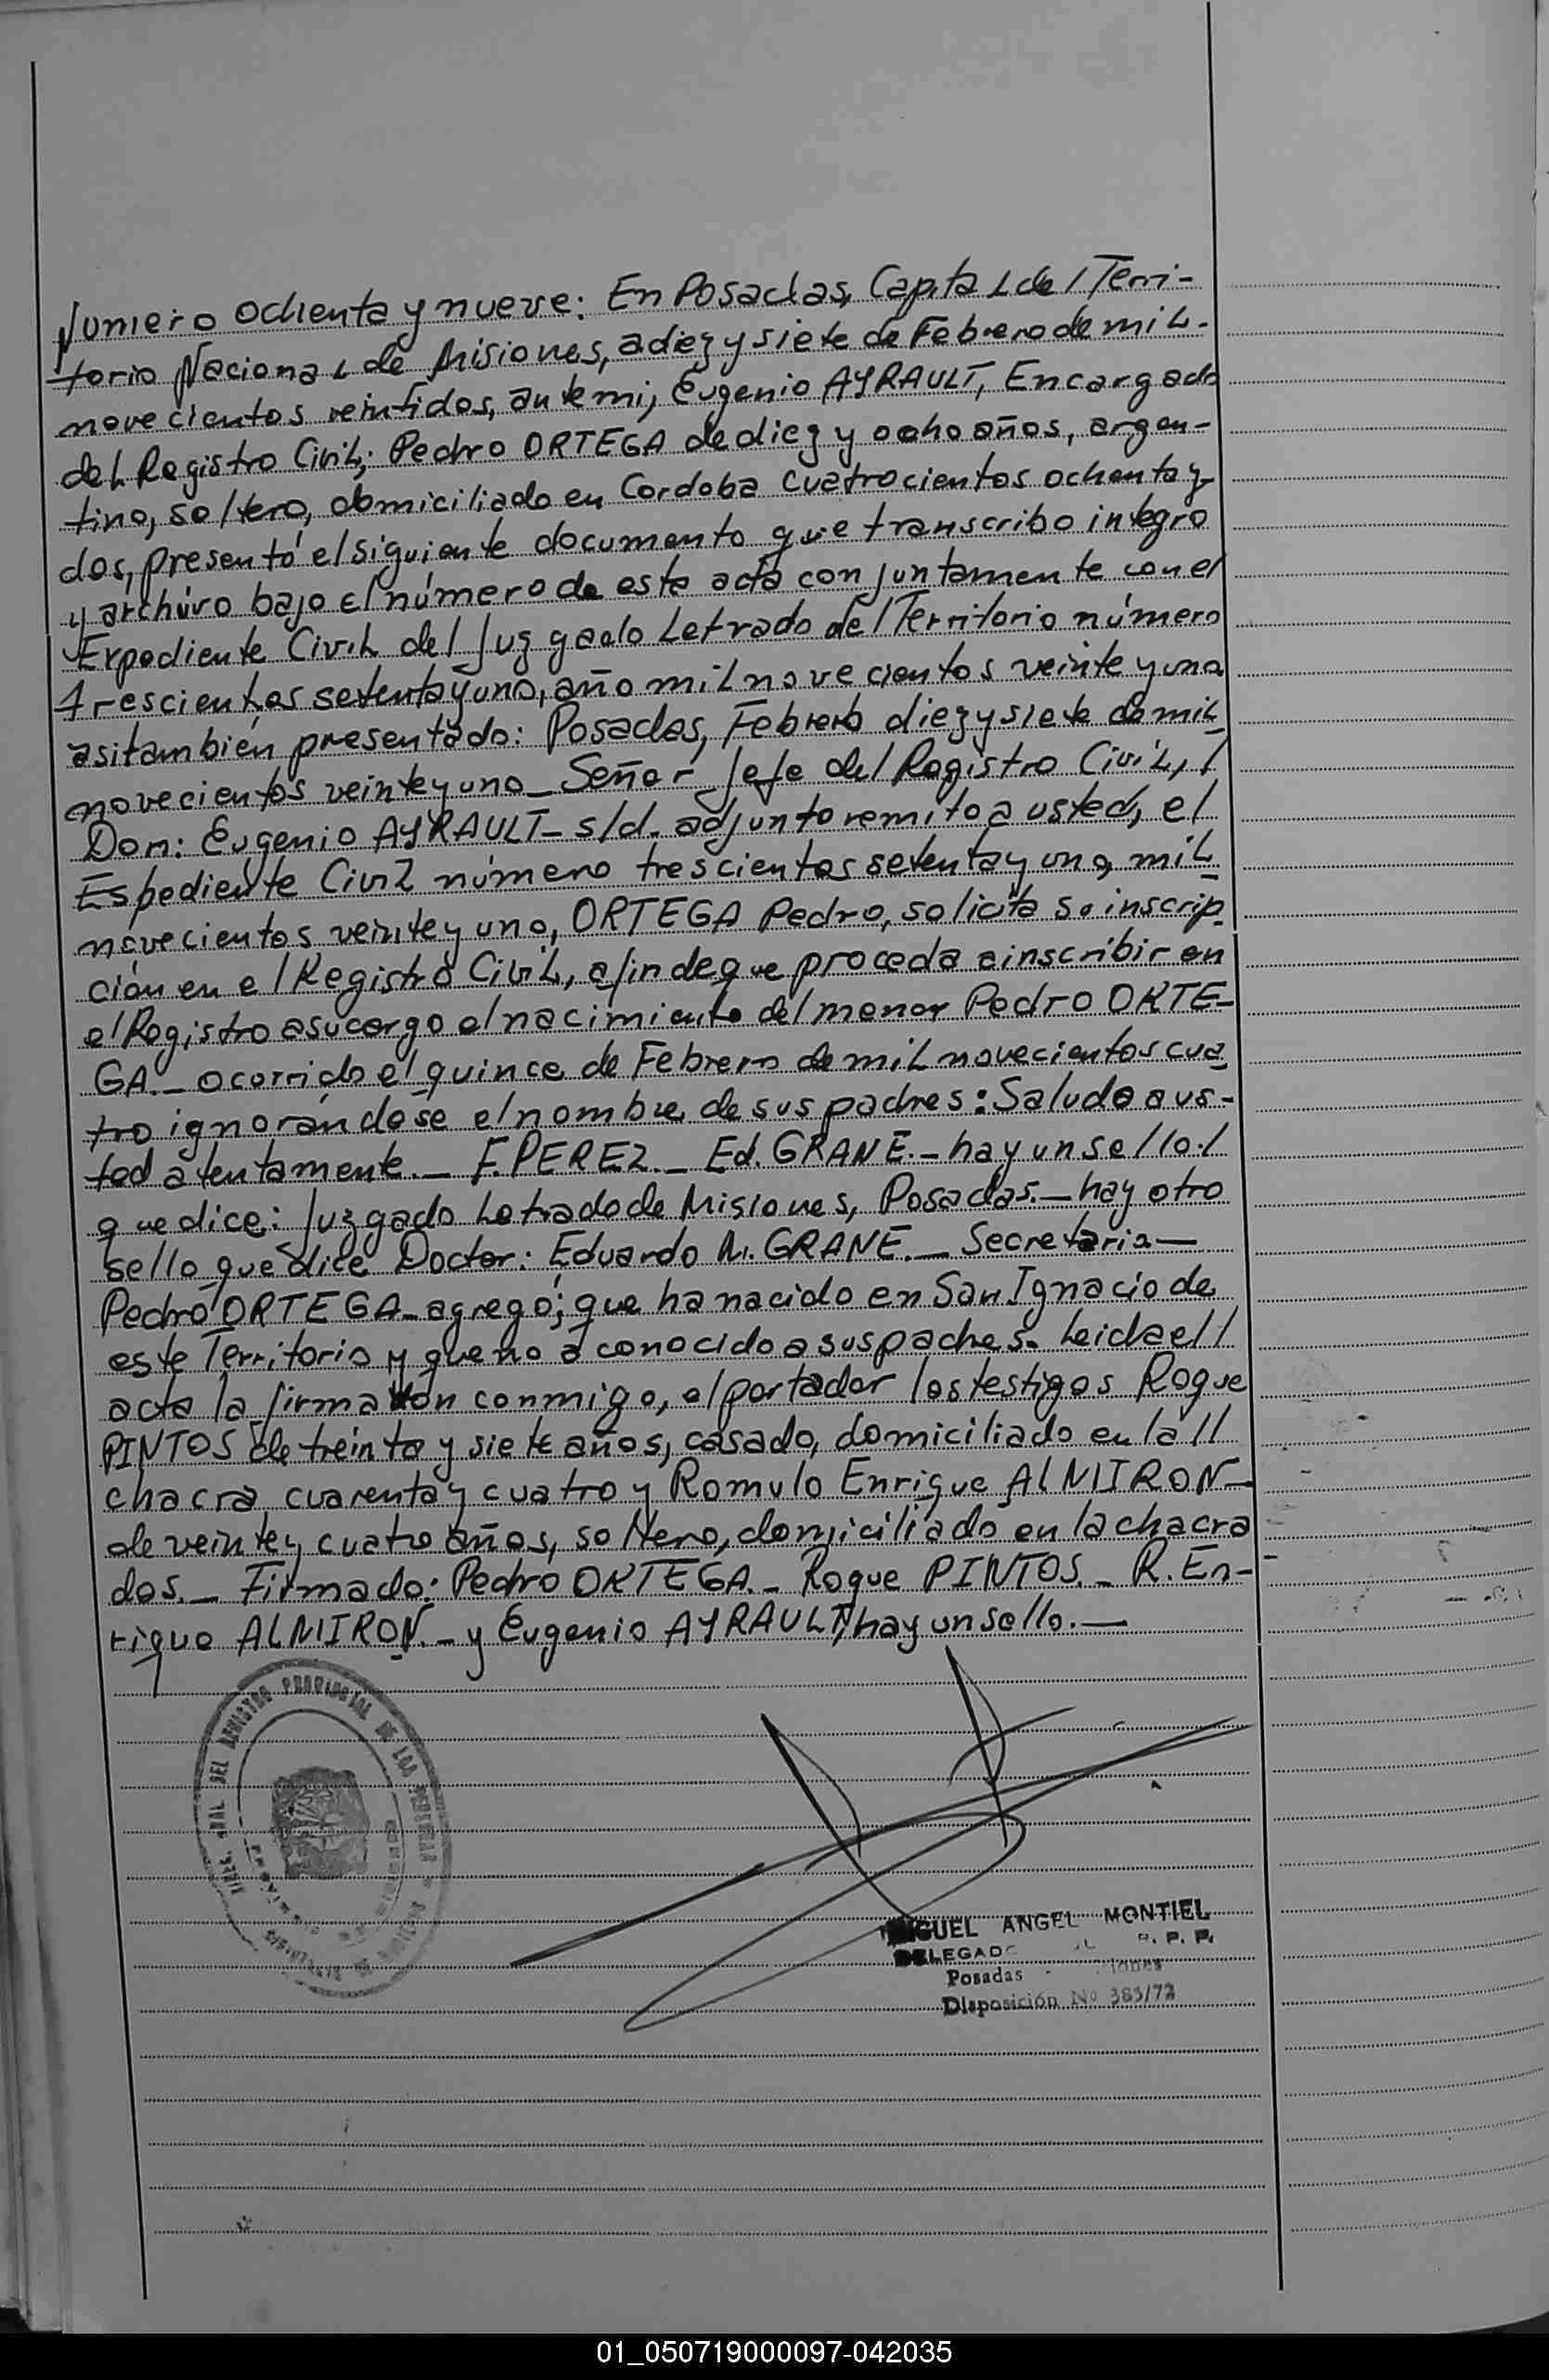 Numero ochenta y nueve: En Posadas, Capital del Terri-
torio Nacional de Misiones, a diez y siete de Febrero de mil
novecientos veintidos, ante mi, Eugenio AYRAULT, Encargado
del Registro Civil; Pedro ORTEGA de diez y ocho años, argen-
tino, soltero, domiciliado en Cordoba cuatrocientos ochenta y
dos, presentó el siguiente documento que transcribo integro
y archivo bajo el número de esta acta conjuntamente con el
Expediente Civil del Juzgado Letrado del Territorio número
trescientos setenta y uno, año mil novecientos veinte y uno
asi también presentado: Posadas, Febrero diez y siete de mil
novecientos veinte y uno_ Señor Jefe del Registro Civil, /
Don: Eugenio AYRAULT_ s/d. adjunto remito a usted, el
Espediente Civil número trescientos setenta y uno, mil
novecientos veinte y uno, ORTEGA Pedro, solicita su inscrip-
ción en el Registro Civil, a fin de que proceda a inscribir en
el Registro a su cargo el nacimiento del menor Pedro ORTE-
GA._ ocorrido el quince de Febrero de mil novecientos cua
tro ignorándose el nombre de sus padres: Saludo a us-
ted atentamente._ F. PEREZ._ Ed. GRANE._ hay un sello /
que dice: Juzgado Letrado de Misiones, Posadas._ hay otro
sello que dice Doctor: Eduardo M. GRANE._ Secretaria_
Pedro ORTEGA_ agregó; que ha nacido en San Ignacio de
este Territorio y que no a conocido a sus padres. Leida el //
acta la firmaron conmigo, el portador los testigos Roque
PINTOS de treinta y siete años, casado, domiciliado en la //
chacra cuarenta y cuatro y Romulo Enrique ALMIRON_
de veinte y cuatro años, soltero, domiciliado en la chacra
dos._ Firmado: Pedro ORTEGA._ Roque PINTOS._ R. En-
rique ALMIRON._ y Eugenio AYRAULT, hay un sello._
DEL REGISTRO PROVINCIAL DE LAS PERSONAS
MIGUEL ANGEL MONTIEL
DELEGADO R. P. P.
Posadas
Disposición Nº 383/72
01_050719000097-042035